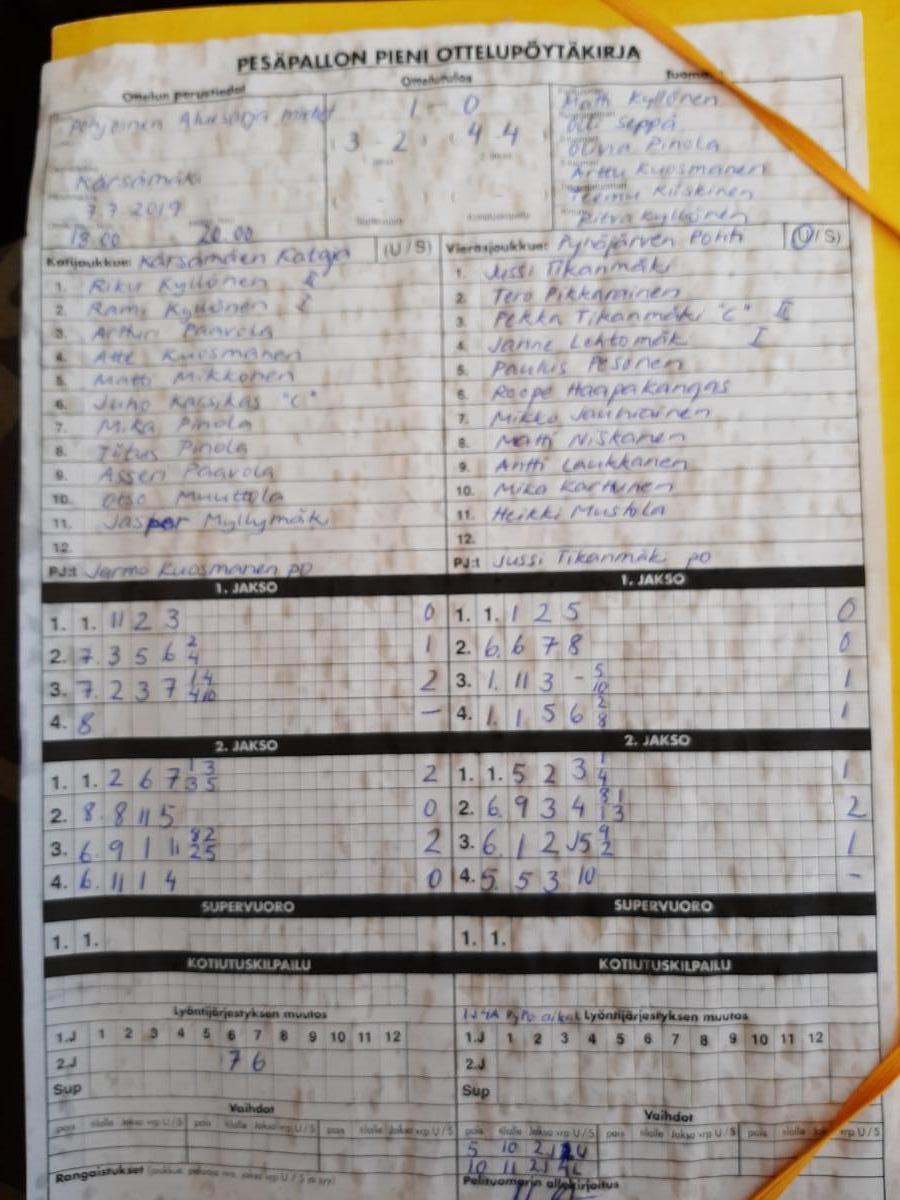 PESÄPALLON PIENI OTTELUPÖYTÄKIRJA
Ottelun perustiedot
Ottelutulos
Pohjoinen Aluesarja miehet
1 - 0
(3 - 2) (4 - 4)
Matti Kyllönen
Olli Seppä
Olivia Pinola
Arttu Kuosmanen
Teemu Kiiskinen
Ritva Kyllönen
Kärsämäki
7.7.2019
18.00 20.00
Kotijoukkue: Kärsämäen Katajä (U / S)
1. Riku Kyllönen II
2. Rami Kyllönen I
3. Artturi Paavola
4. Atte Kuosmanen
5. Matti Mikkonen
6. Juho Karsikas "C"
7. Mika Pinola
8. Titus Pinola
9. Asseri Paavola
10. Otso Muuttola
11. Jasper Myllymäki
12.
PJ:t Jarmo Kuosmanen po
Vierasjoukkue: Pyhäjärven Pohti (U / S)
1. Jussi Tikanmäki
2. Tero Pikkarainen
3. Pekka Tikanmäki "C" II
4. Janne Lehtomäki I
5. Paulus Pesonen
6. Roope Haapakangas
7. Mikko Jauhiainen
8. Matti Niskanen
9. Antti Laukkanen
10. Mika Karhunen
11. Heikki Mustola
12.
PJ:t Jussi Tikanmäki po
1. JAKSO
1. 1. 11 2 3 0
2. 7. 3 5 6 2 4 1
3. 7. 2 3 7 1 4 4 10 2
4. 8 -
1. JAKSO
1. 1. 1 2 5 0
2. 6. 6 7 8 0
3. 1. 11 3 - 5 10 1
4. 1. 1 5 6 2 8 1
2. JAKSO
1. 1. 2 6 7 1 3 3 5 2
2. 8. 8 11 5 0
3. 6. 9 1 11 8 2 2 5 2
4. 6. 11 1 4 0
2. JAKSO
1. 1. 5 2 3 1 4 1
2. 6. 9 3 4 8 1 1 3 2
3. 6. 1 2 5 9 2 1
4. 5. 5 3 10 -
SUPERVUORO
1. 1.
SUPERVUORO
1. 1.
KOTIUTUSKILPAILU
KOTIUTUSKILPAILU
Lyöntijärjestyksen muutos
1.J 1 2 3 4 5 6 7 8 9 10 11 12
2.J 7 6
Sup
Lyöntijärjestyksen muutos
1.J 1 2 3 4 5 6 7 8 9 10 11 12
2.J
Sup
Vaihdot
pois tilalle Jakso vrp U / S pois tilalle Jakso vrp U / S pois tilalle Jakso vrp U / S
Vaihdot
pois tilalle Jakso vrp U / S pois tilalle Jakso vrp U / S pois tilalle Jakso vrp U / S
5 10 2J
10 11 2J
Rangaistukset
Pelituomarin allekirjoitus